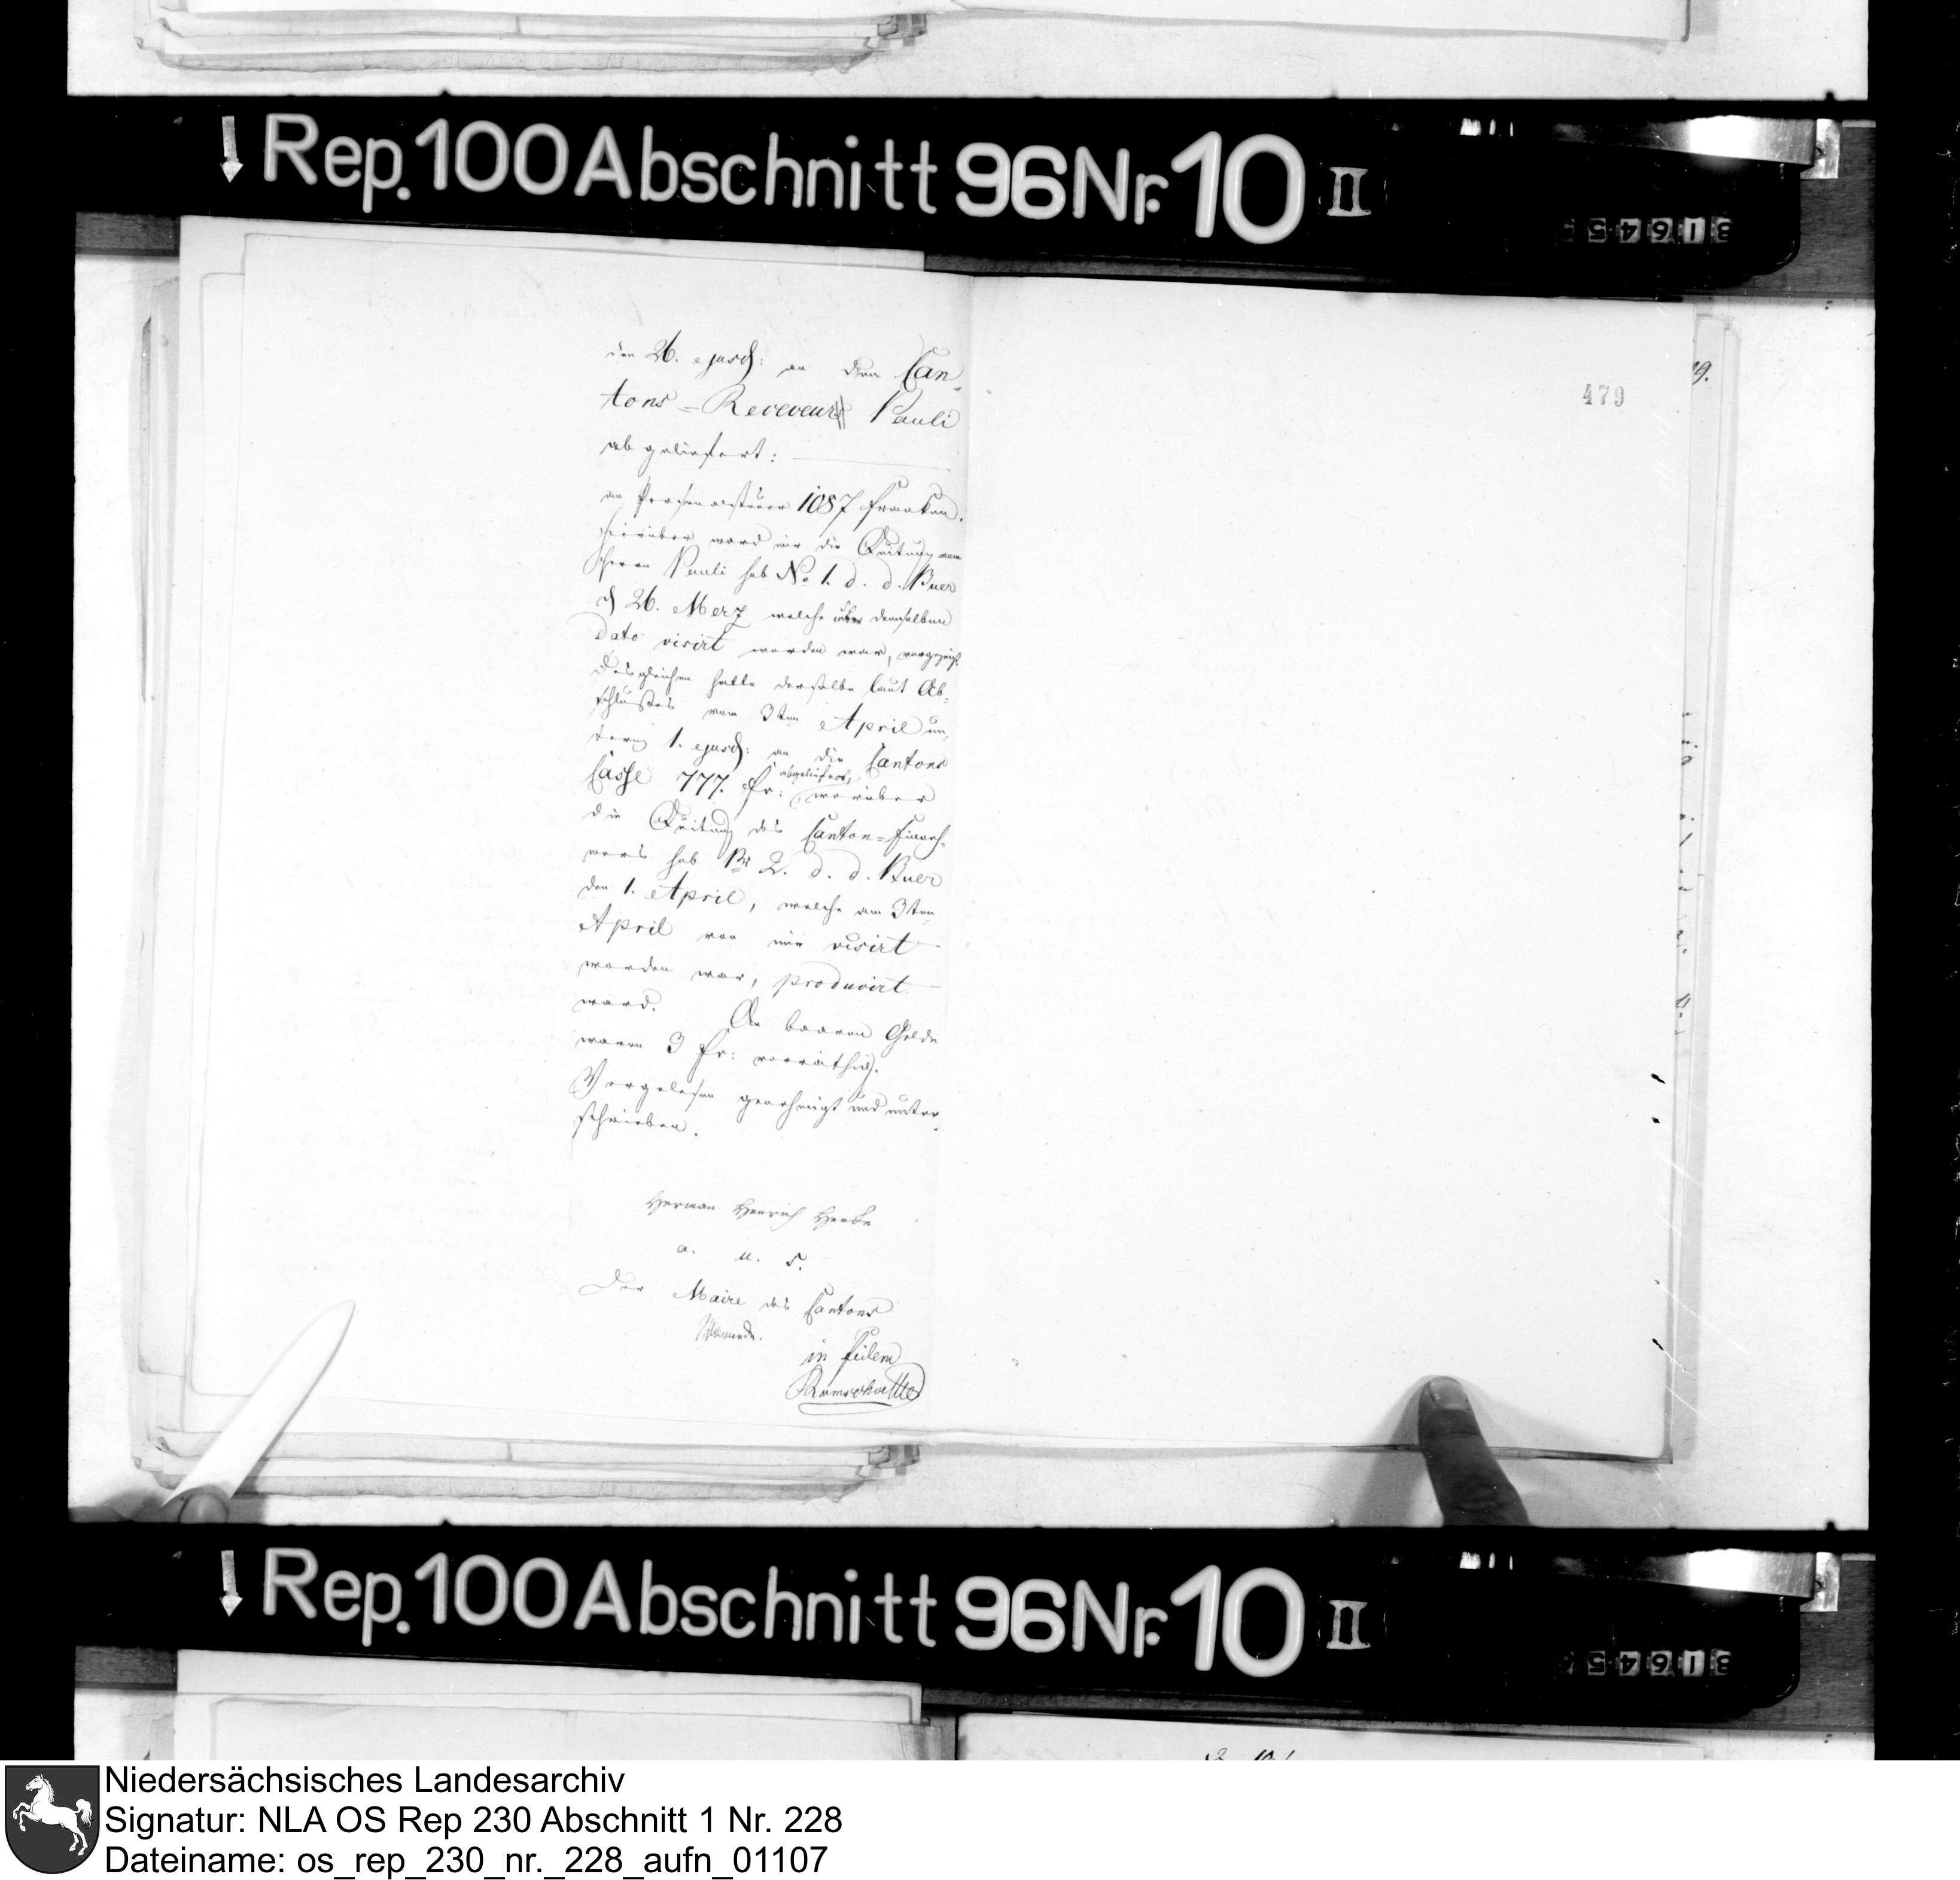 Rep. 100 Abschnitt 96 Nr. 10 II
3 1 6 4 5
den 26. ejusd: an den Can-
tons-Receveur Pauli
abgeliefert:
an Personalsteuer 1087 Franken.
Hierüber ward mir die Quitung vom
Herrn Pauli sub No 1. d. d. Buer
d 26. Merz welche unter demselben
dato visirt worden war, vorgezeigt.
Desgleichen hatte derselbe laut Ab-
schlußes vom 3ten April un-
term 1. ejusd: an die Cantons
Casse 777. Fr: abgeliefert, worüber
die Quitung des Canton-Einneh-
mers sub Nr 2. d. d. Buer
den 1. April, welche am 3ten
April von mir visirt
worden war, producirt
ward. An baaren Gelde
waren 3 Fr: vorräthig.
Vorgelesen genehmigt und unter-
schrieben.
Herman Henrich
a. u. s.
Der Maire des Cantons
in fidem
479
9.
Rep. 100 Abschnitt 96 Nr. 10 II
3 1 6 4 5
Niedersächsisches Landesarchiv
Signatur: NLA OS Rep 230 Abschnitt 1 Nr. 228
Dateiname: os_rep_230_nr._228_aufn_01107